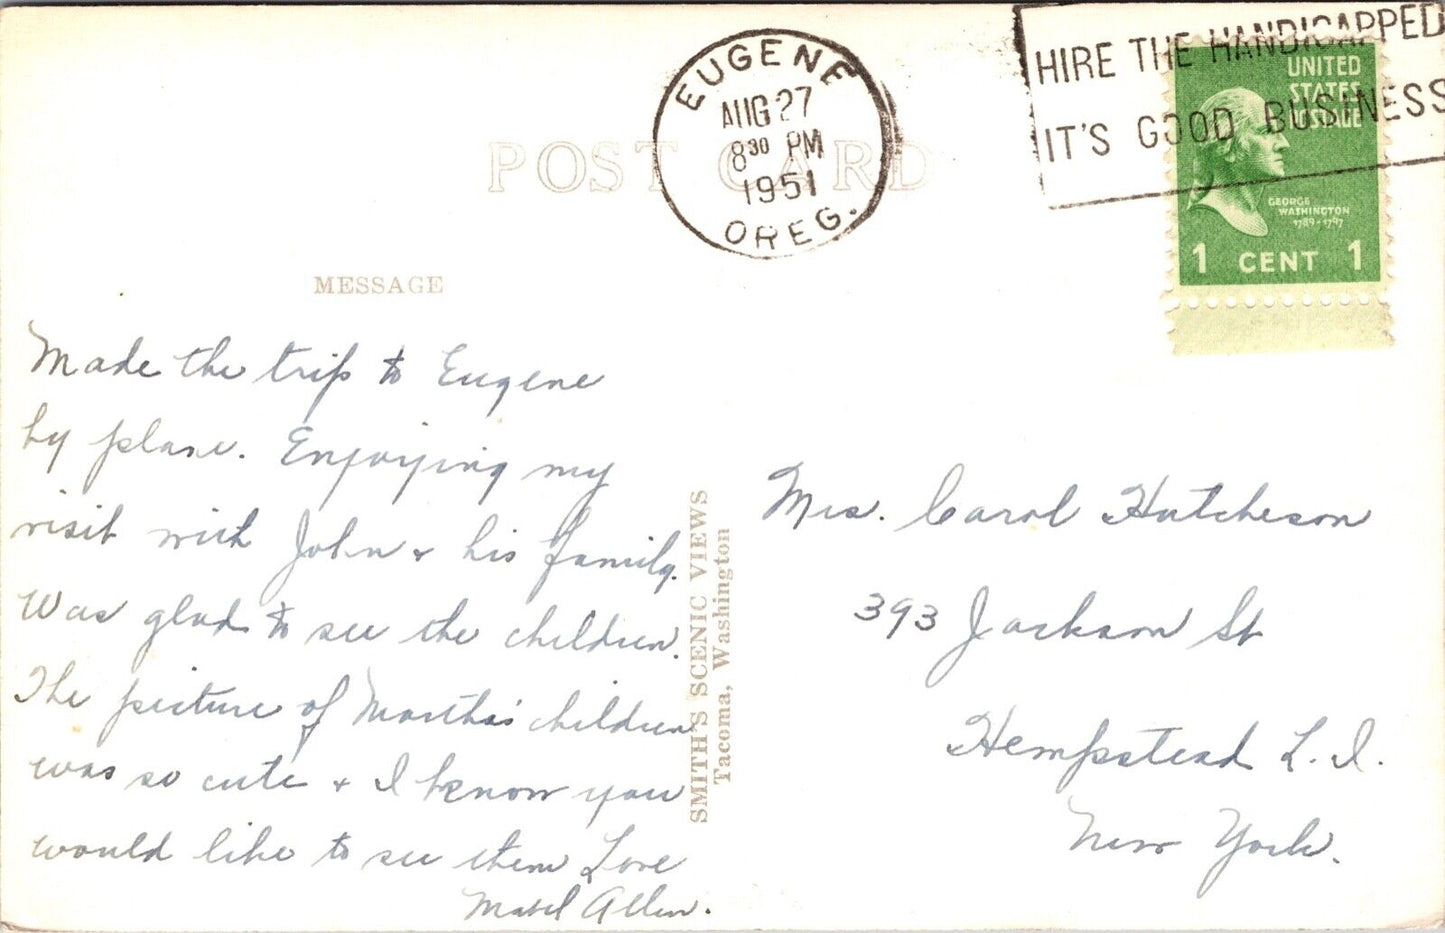 POST CARD
EUGENE
AUG 27
8 30 PM
1951
OREG.
HIRE THE HANDICAPPED
IT'S GOOD BUSINESS
UNITED
STATES
POSTAGE
GEORGE
WASHINGTON
1789-1797
1 CENT 1
MESSAGE
Made the trip to Eugene
by plane. Enjoying my
visit with John & his family.
Was glad to see the children.
The picture of Martha's children
was so cute & I know you
would like to see them Love
Mabel Allen.
SMITH'S SCENIC VIEWS
Tacoma, Washington
Mrs. Carol Hutcheson
393 Jackson St
Hempstead L. I.
New York.